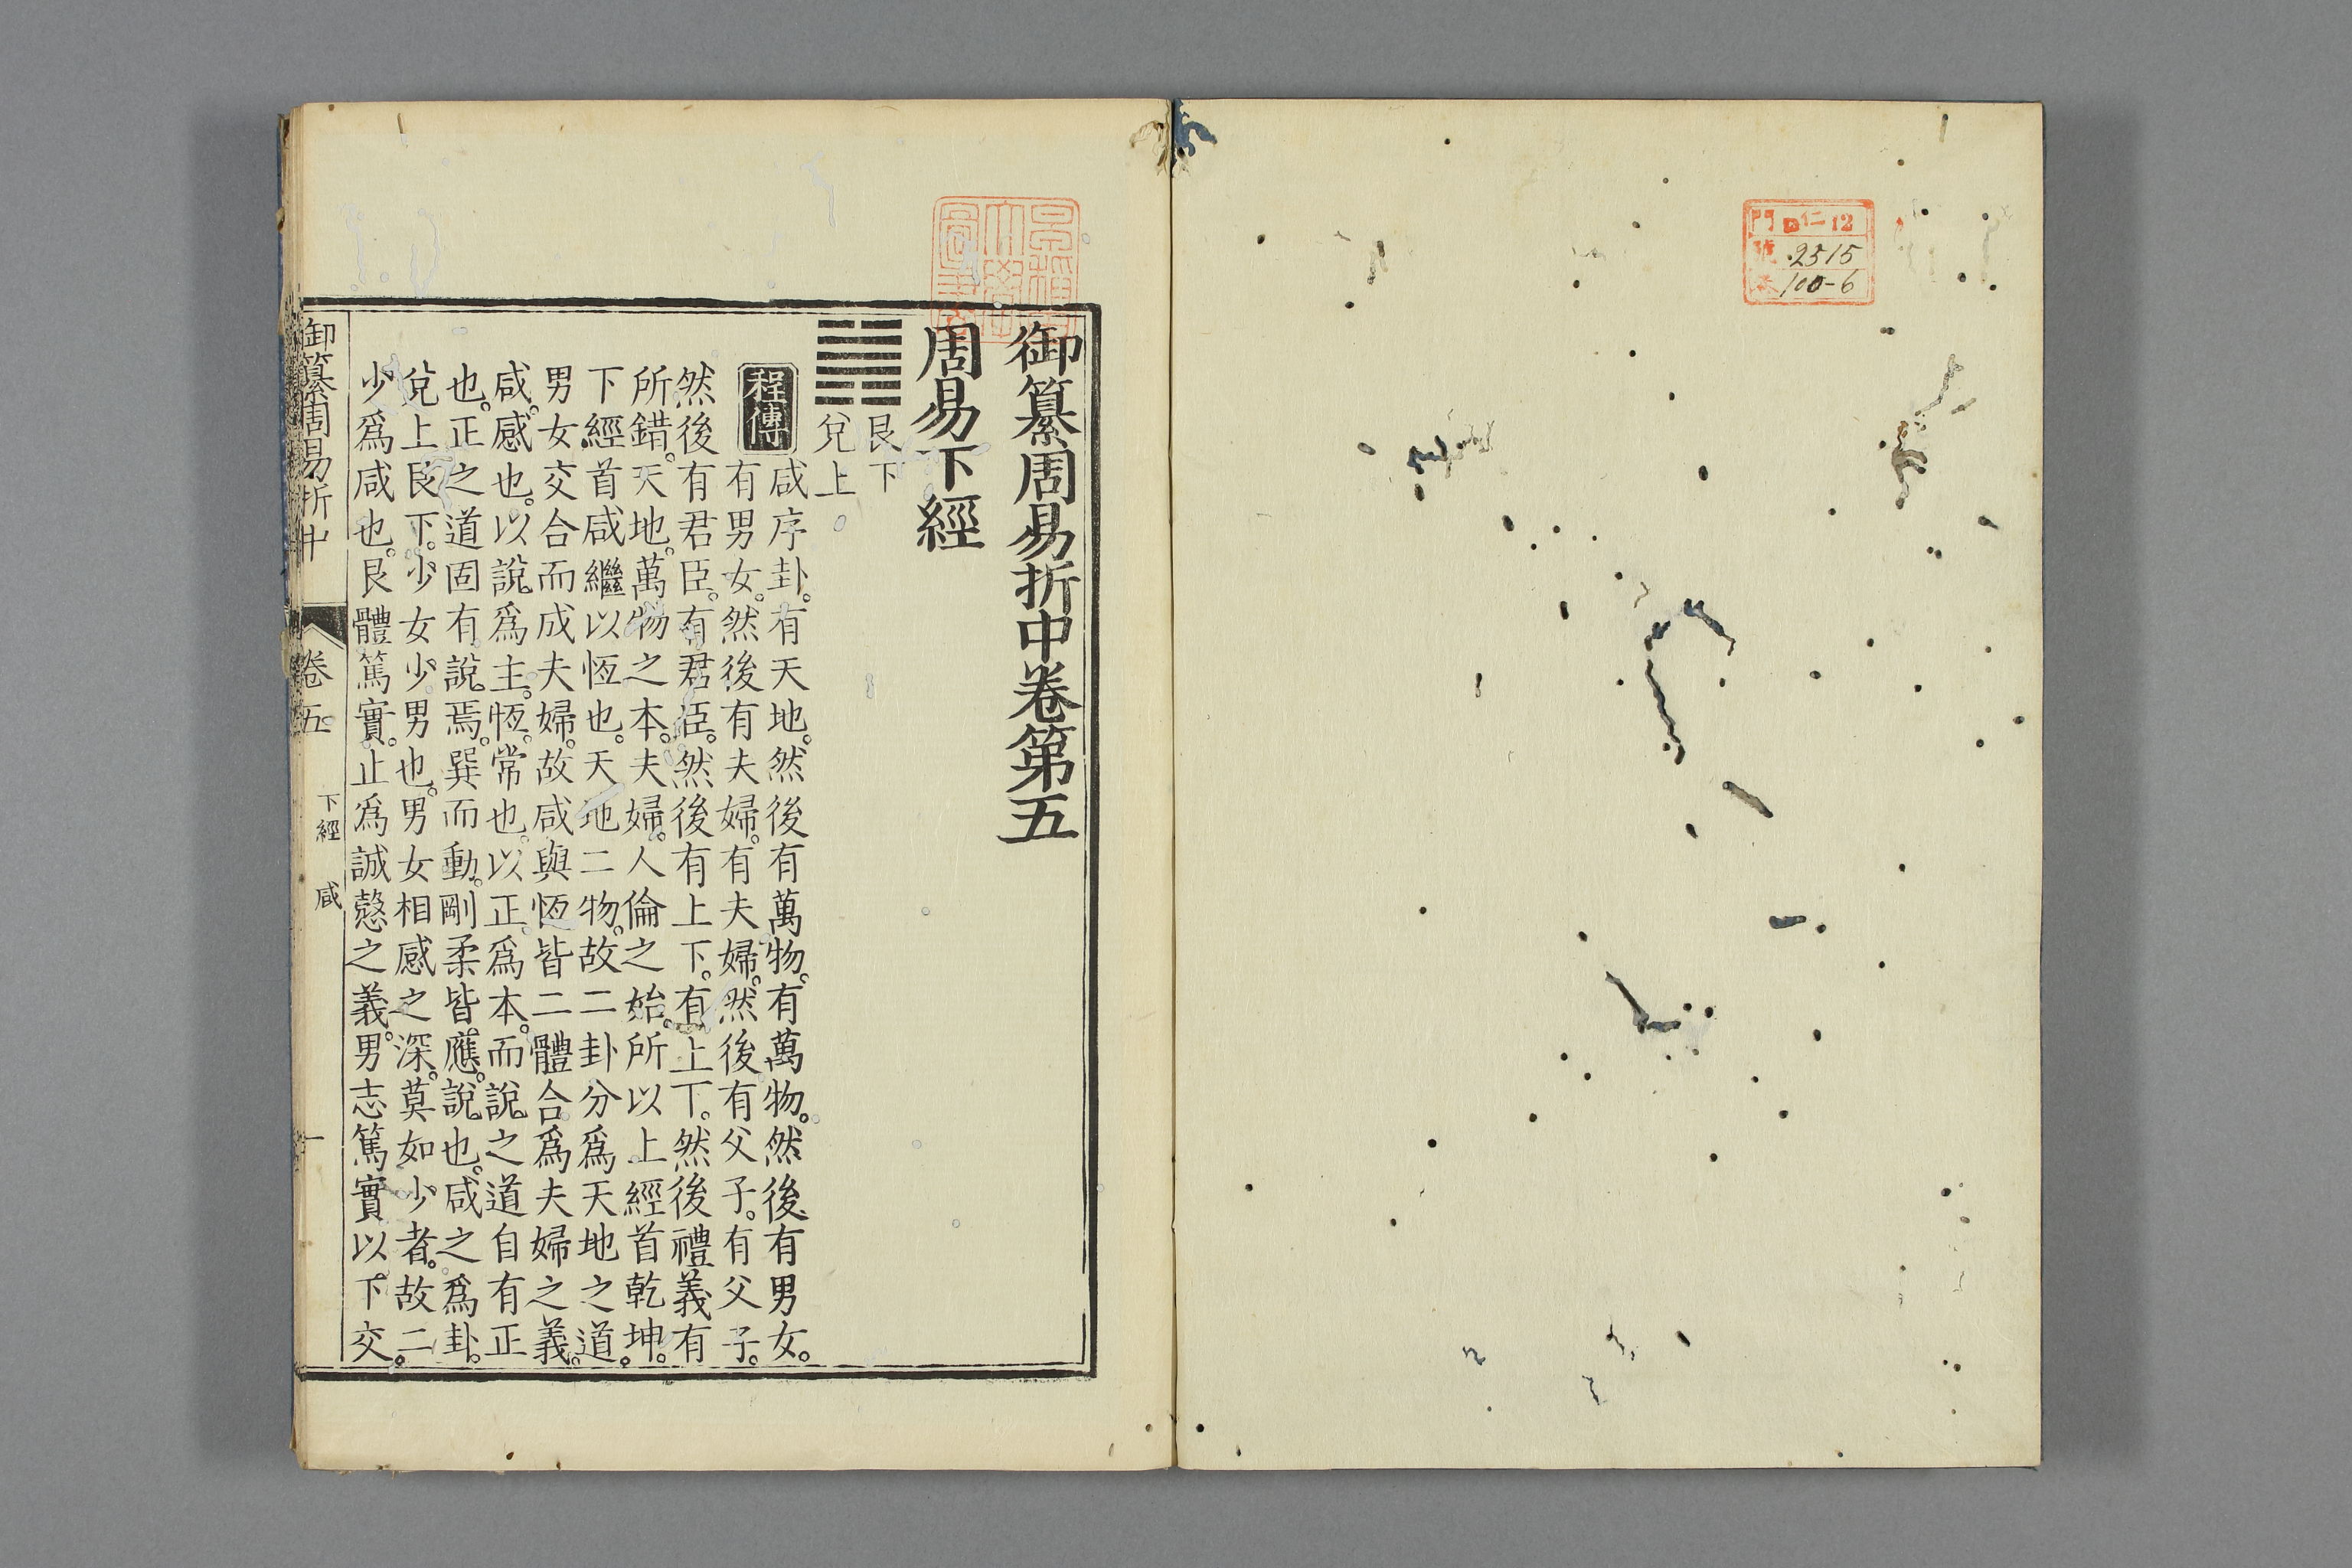 門 ロ仁12
號 2515
卷 100-6
早稲田大學圖書
御纂周易折中卷第五
周易下經
艮下
兌上。
程傳
咸序卦。有天地。然後有萬物。有萬物。然後有男女。
有男女。然後有夫婦。有夫婦。然後有父子。有父子。
然後有君臣。有君臣。然後有上下。有上下。然後禮義有
所錯。天地。萬物之本。夫婦。人倫之始。所以上經首乾坤。
下經首咸繼以恆也。天地二物。故二卦分爲天地之道。
男女交合而成夫婦。故咸與恆皆二體合爲夫婦之義。
咸。感也。以說爲主。恆。常也。以正爲本。而說之道自有正
也。正之道固有說焉。巽而動。剛柔皆應。說也。咸之爲卦。
兌上艮下。少女少男也。男女相感之深。莫如少者。故二
少爲咸也。艮體篤實。止爲誠慤之義。男志篤實以下交。
御纂周易折中
卷五
下經 咸
一